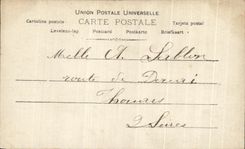 UNION POSTALE UNIVERSELLE
CARTE POSTALE
Cartolina postale
Tarjeta postal
Levelező-lap Postcard Postkarte Briefkaart
Melle A. Sablon
route de
Thouars
2 Sèvres